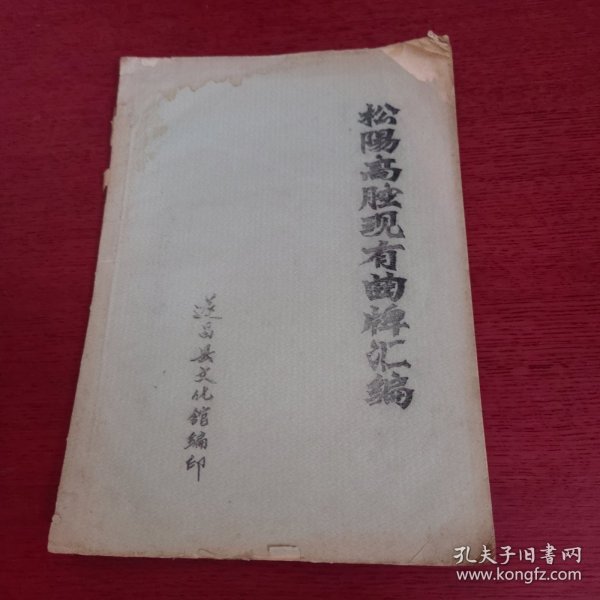 松陽高腔现有曲牌汇编
遂昌县文化馆编印
孔夫子旧书网
www.kongfz.com